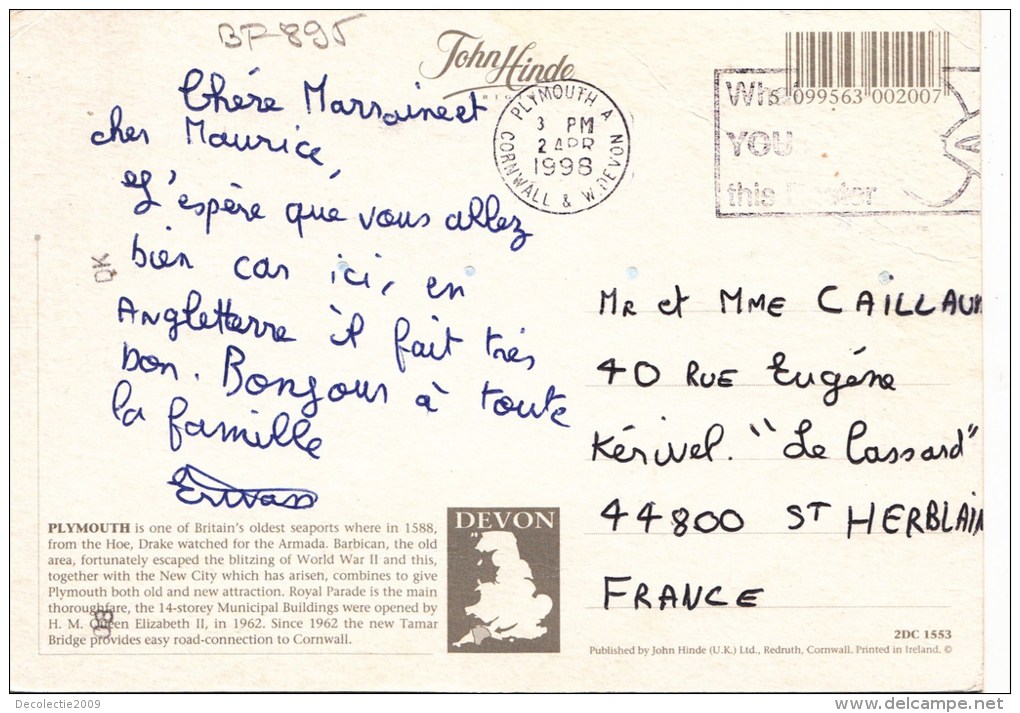 BP-895
John Hinde
5 099563 002007
PLYMOUTH A
3 PM
2 APR
1998
CORNWALL & W. DEVON
YOU
this
Chère Marraine et
cher Maurice,
J'espère que vous allez
bien car ici, en
Angletterre il fait très
bon. Bonjour à toute
la famille
Erwan
MR et MME CAILLAU
40 RUE Eugène
Kérivel. "Le Cassard"
44800 ST HERBLAIN
FRANCE
PLYMOUTH is one of Britain's oldest seaports where in 1588,
from the Hoe, Drake watched for the Armada. Barbican, the old
area, fortunately escaped the blitzing of World War II and this,
together with the New City which has arisen, combines to give
Plymouth both old and new attraction. Royal Parade is the main
thoroughfare, the 14-storey Municipal Buildings were opened by
H. M. Queen Elizabeth II, in 1962. Since 1962 the new Tamar
Bridge provides easy road-connection to Cornwall.
DEVON
2DC 1553
Published by John Hinde (U.K.) Ltd., Redruth, Cornwall. Printed in Ireland. ©
Decolectie2009
www.delcampe.net